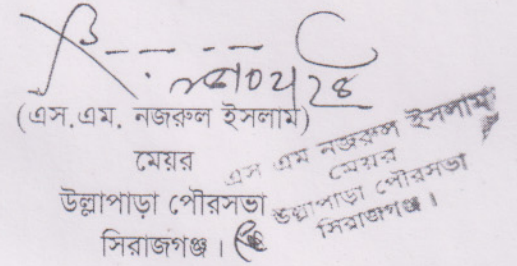 (এস.এম. নজরুল ইসলাম)
মেয়র
উল্লাপাড়া পৌরসভা
সিরাজগঞ্জ।
এস এম নজরুল ইসলাম
মেয়র
উল্লাপাড়া পৌরসভা
সিরাজগঞ্জ।